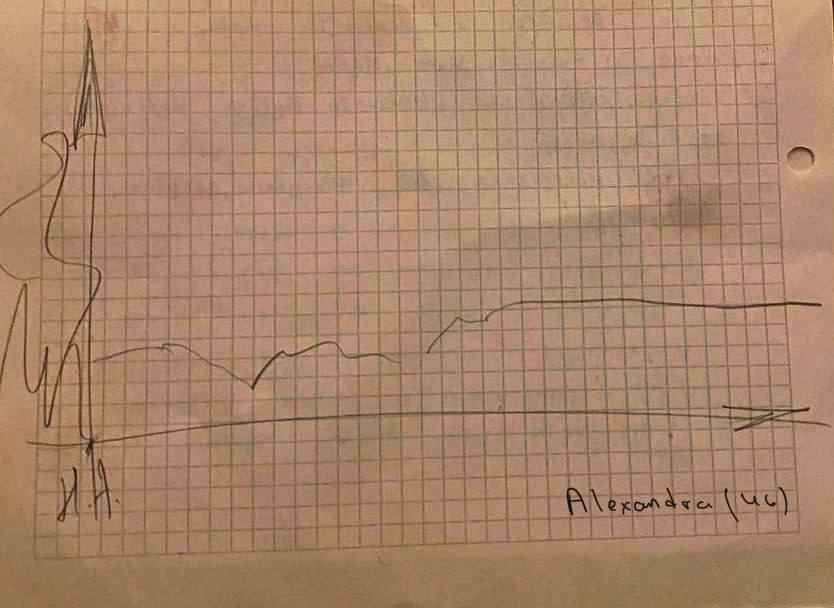 H.A.
Alexandra (46)